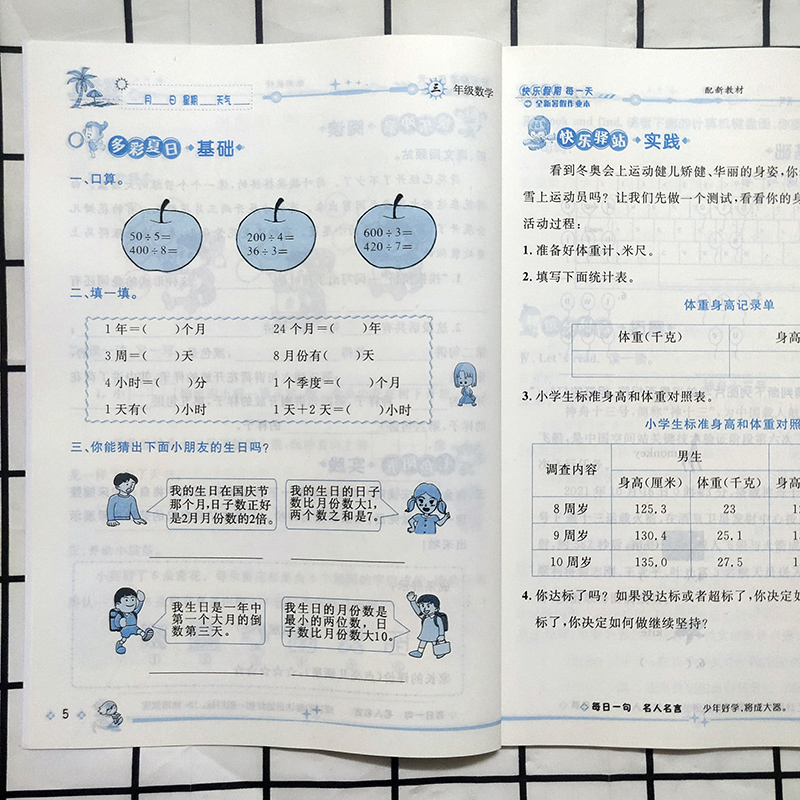 月 日 星期 天气
三 年级数学
多彩夏日 基础
一、口算。
50÷5= 200÷4= 600÷3=
400÷8= 36÷3= 420÷7=
二、填一填。
1年=( )个月 24个月=( )年
3周=( )天 8月份有( )天
4小时=( )分 1个季度=( )个月
1天有( )小时 1天+2天=( )小时
三、你能猜出下面小朋友的生日吗?
我的生日在国庆节
那个月,日子数正好
是2月月份数的2倍。
我的生日的日子
数比月份数大1,
两个数之和是7。
我生日是一年中
第一个大月的倒
数第三天。
我生日的月份数是
最小的两位数,日
子数比月份数大10。
5
快乐假期 每一天
全新暑假作业本
配新教材
快乐驿站 实践
看到冬奥会上运动健儿矫健、华丽的身姿,你
雪上运动员吗?让我们先做一个测试,看看你的身
活动过程:
1. 准备好体重计、米尺。
2. 填写下面统计表。
体重身高记录单
体重(千克) 身高
3. 小学生标准身高和体重对照表。
小学生标准身高和体重对照
调查内容 男生
身高(厘米) 体重(千克)
8周岁 125.3 23
9周岁 130.4 25.1
10周岁 135.0 27.5
4. 你达标了吗?如果没达标或者超标了,你决定如
标了,你决定如何做继续坚持?
每日一句 名人名言 少年好学,将成大器。